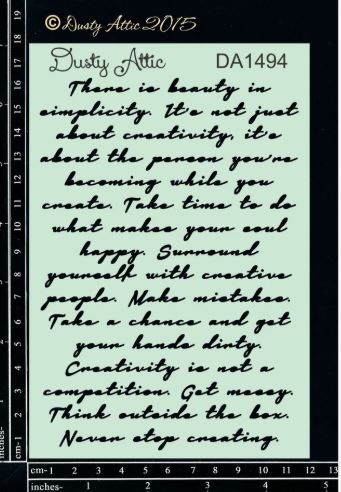 © Dusty Attic 2015
Dusty Attic DA1494
There is beauty in
simplicity. It's not just
about creativity, it's
about the person you're
becoming while you
create. Take time to do
what makes your soul
happy. Surround
yourself with creative
people. Make mistakes.
Take a chance and get
your hands dirty.
Creativity is not a
competition. Get messy.
Think outside the box.
Never stop creating.
cm-1 2 3 4 5 6 7 8 9 10 11 12 13
inches- 1 2 3 4 5
cm-1 2 3 4 5 6 7 8 9 10 11 12 13 14 15 16 17 18 19